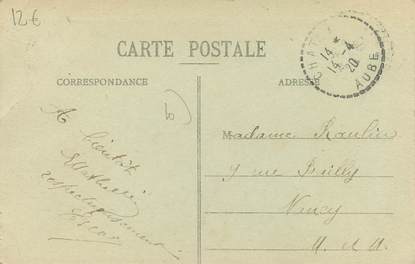 12€
CARTE POSTALE
CORRESPONDANCE
ADRESSE
14 *
14-4
20
AUBE
A bientôt
respectueusement
Madame Raulin
9 rue
Nancy
M. et M.